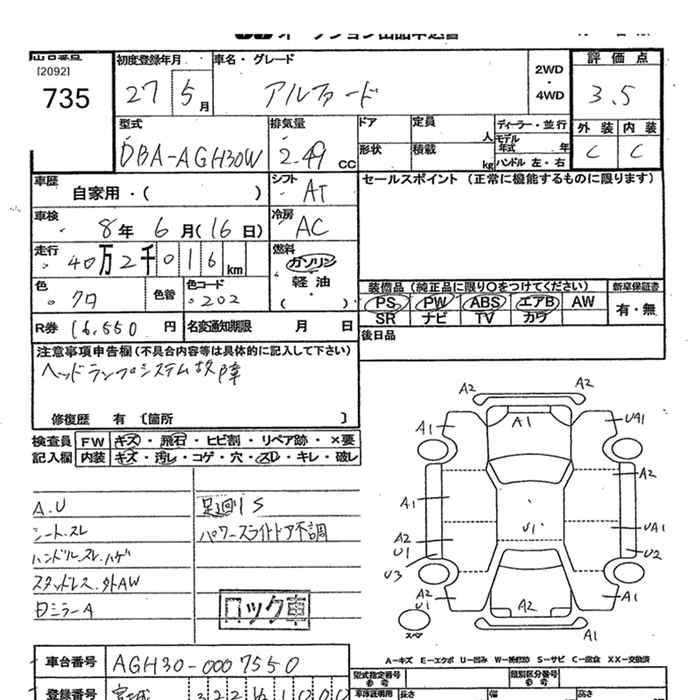 オークション出品申込書
出品番号
[2092]
735
初度登録年月
27 5月
車名・グレード
アルファード
2WD
・
4WD
評価点
3.5
外装 内装
C C
型式
DBA-AGH30W
排気量
2.49 CC
ドア
定員
人
形状
積載
kg
ディーラー・並行
モデル年式 年
ハンドル 左・右
車歴
自家用・( )
シフト
AT
セールスポイント (正常に機能するものに限ります)
車検
8年 6月(16日)
冷房
AC
走行
40万2千016km
燃料
ガソリン
軽油
( )
色
クロ
色替
色コード
202
装備品(純正品に限り○をつけてください)
新車保証書
PS PW ABS エアB AW
有・無
SR ナビ TV カワ
R券 16,550 円
名変通知期限 月 日
後日品
注意事項申告欄(不具合内容等は具体的に記入して下さい)
ヘッドランプシステム故障
修復歴 有 〔箇所 〕
検査員 FW キズ・飛石・ヒビ割・リペア跡・×要
記入欄 内装 キズ・汚レ・コゲ・穴・スレ・キレ・破レ
A.U
シートスレ
ハンドルスレ.ハゲ
スタッドレス.外AW
日ミラーA
足廻りS
パワースライドドア不調
ロック車
A2 A2
A1 A1 UA1
A2
A1
U1 UA1
A2
U1 U2
U3
A2
U1 A2 A1
スペア
A1
A-キズ E-エクボ U-凹み W-補修跡 S-サビ C-腐食 XX-交換済
車台番号 AGH30-0007550
型式指定番号
参考
類別区分番号
参考
登録番号 宮城 322
車体証明用
参考
長さ 幅 高さ